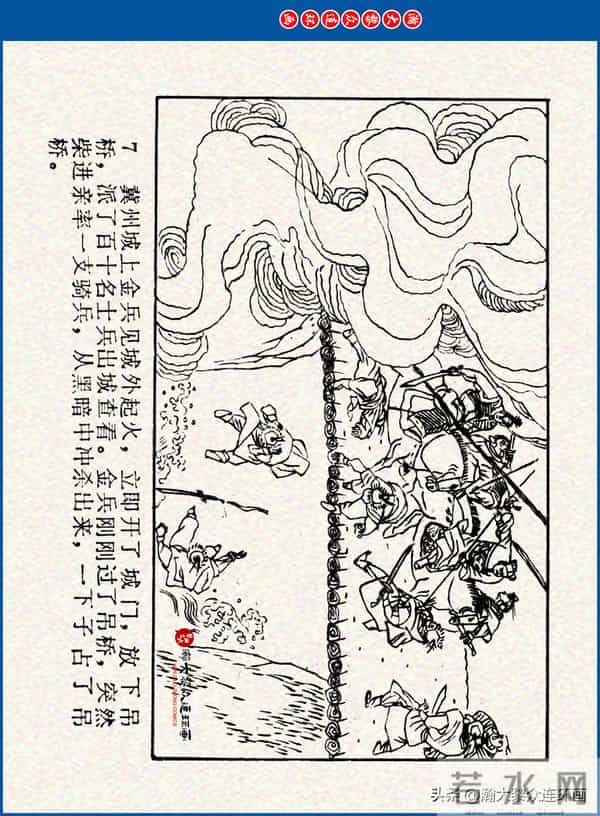 瀚大黎众连环画
7 冀州城上金兵见城外起火，立即开了城门，放下吊
桥，派了百十名士兵出城查看。金兵刚刚过了吊桥，突然
柴进亲率一支骑兵，从黑暗中冲杀出来，一下子占了吊
桥。
瀚大黎众连环画
若水网
头条@瀚大黎众连环画